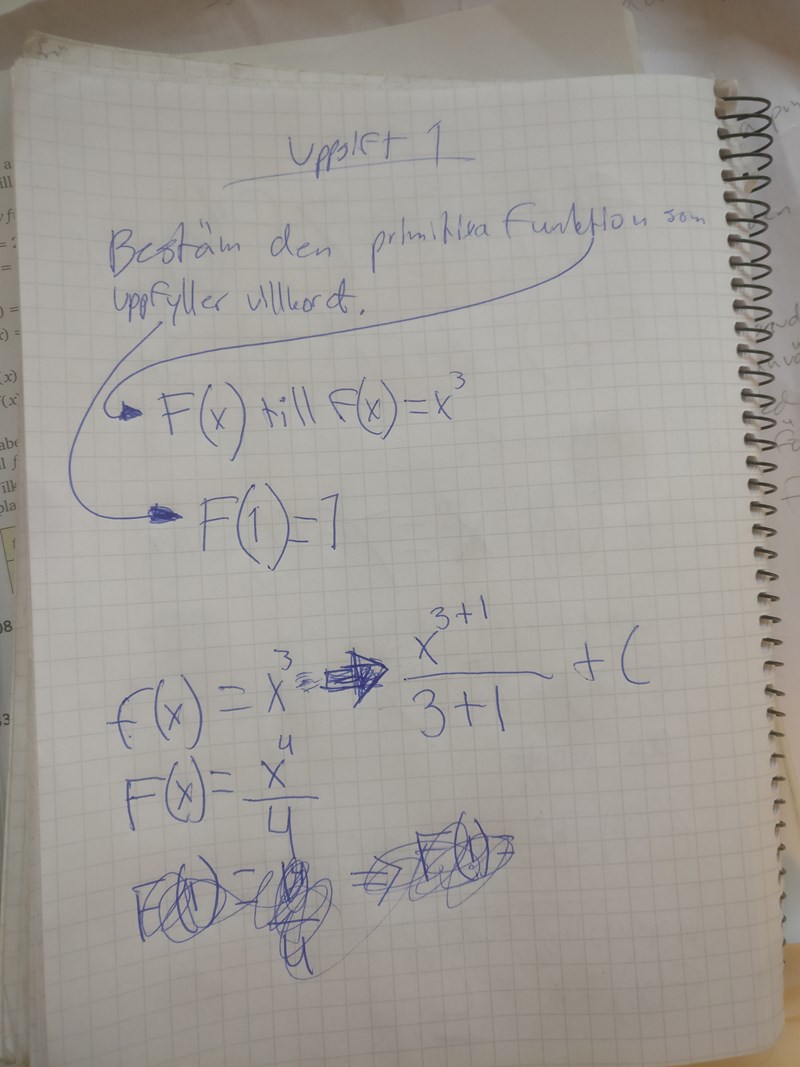 Uppgift 1
Bestäm den primitiva funktion som
uppfyller villkoret.
F(x) till f(x) = x³
F(1) = 7
f(x) = x³ → x³⁺¹ / 3+1 + C
F(x) = x⁴ / 4